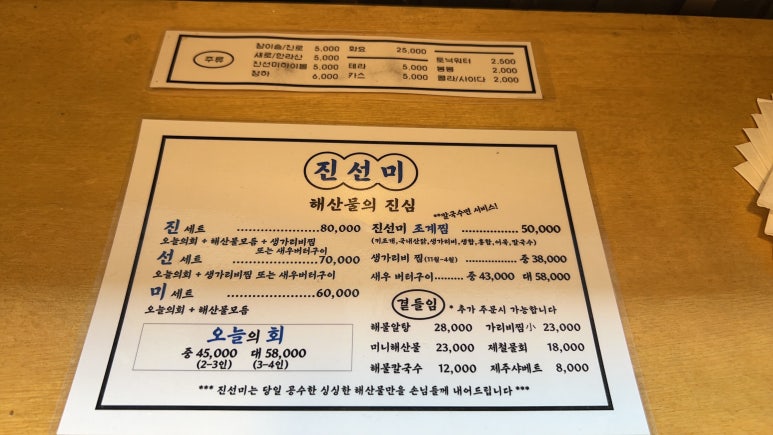 주류
참이슬/진로 5,000 화요 25,000
새로/한라산 5,000 토닉워터 2,500
진선미하이볼 5,000 테라 5,000 봉봉 2,000
청하 6,000 카스 5,000 콜라/사이다 2,000
진선미
해산물의 진심
진 세트 ........................ 80,000
오늘의회 + 해산물모듬 + 생가리비찜
또는 새우버터구이
선 세트 ........................ 70,000
오늘의회 + 생가리비찜 또는 새우버터구이
미 세트 ........................ 60,000
오늘의회 + 해산물모듬
오늘의 회
중 45,000 대 58,000
(2-3인) (3-4인)
**칼국수면 서비스!
진선미 조개찜 .................. 50,000
(키조개,국내산닭,생가리비,생합,홍합,어묵,칼국수)
생가리비 찜 (11월~4월) ............ 중 38,000
새우 버터구이......... 중 43,000 대 58,000
곁들임 * 추가 주문시 가능합니다
해물알탕 28,000 가리비찜小 23,000
미니해산물 23,000 제철물회 18,000
해물칼국수 12,000 제주샤베트 8,000
*** 진선미는 당일 공수한 싱싱한 해산물만을 손님들께 내어드립니다 ***